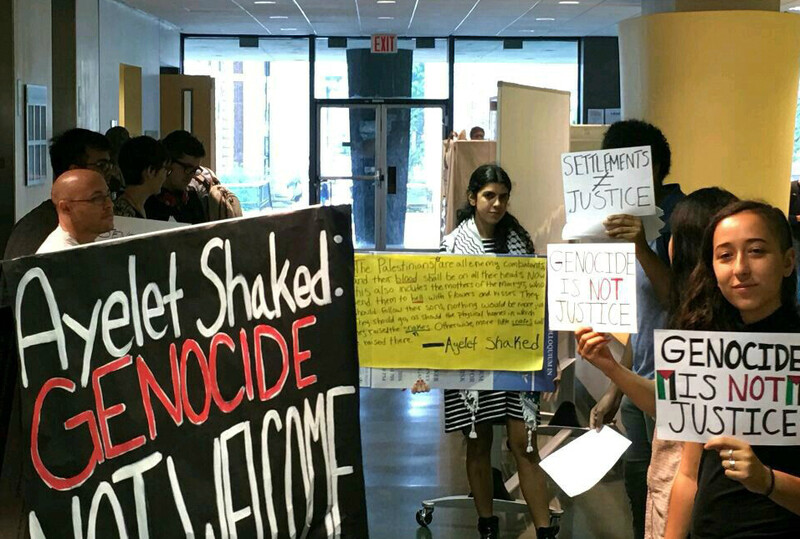 EXIT
Ayelet Shaked:
GENOCIDE
NOT WELCOME
The Palestinians are all enemy combatants
and their blood shall be on all their heads. Now
this also includes the mothers of the martyrs, who
send them to hell with flowers and kisses. They
should follow their sons, nothing would be more just
they should go, as should the physical homes in which
they raised the snakes. Otherwise, more little snakes will
be raised there.
— Ayelet Shaked
OLLOQUIUM IN
SETTLEMENTS
≠
JUSTICE
GENOCIDE
IS NOT
JUSTICE
GENOCIDE
IS NOT
JUSTICE